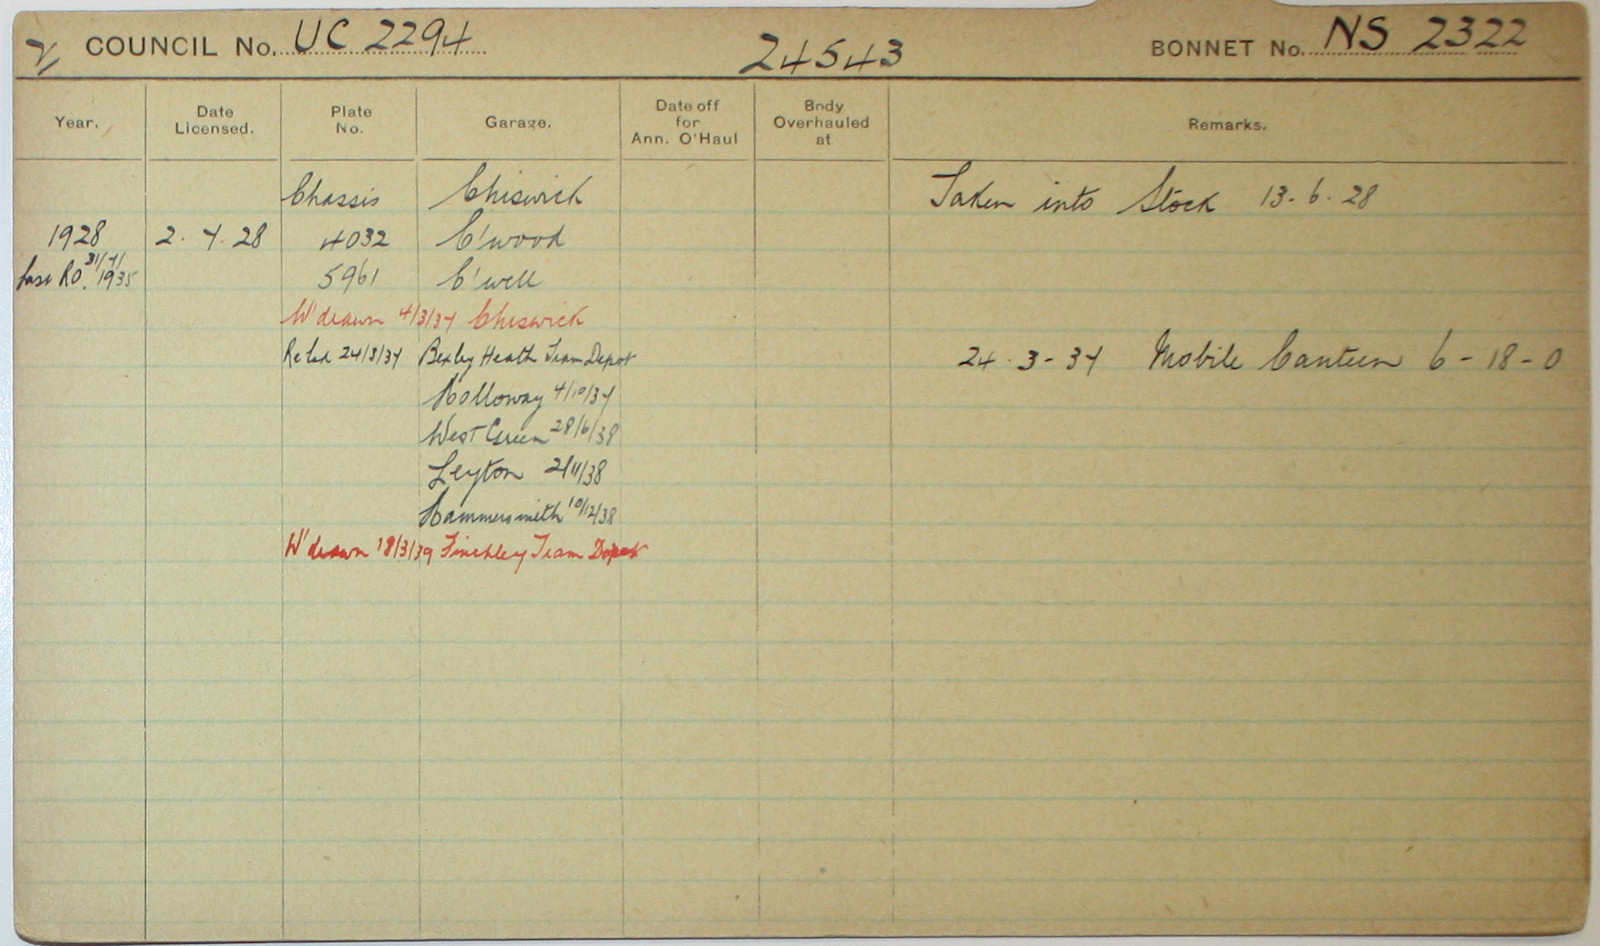 2/ COUNCIL No. UC 2294 24543 BONNET No. NS 2322
Year. Date Licensed. Plate No. Garage. Date off for Ann. O'Haul Body Overhauled at Remarks.
Chassis Chiswick Taken into Stock 13-6-28
1928 2.7.28 4032 C'wood
31/7/1935 5961 C'well
W'drawn 4/3/37 Chiswick
24/3/37 Bexley Heath Tram Depot 24-3-37 Mobile Canteen 6-18-0
Holloway 4/10/37
West Green 28/6/38
Leyton 2/11/38
Hammersmith 10/12/38
W'drawn 18/3/39 Finchley Tram Depot